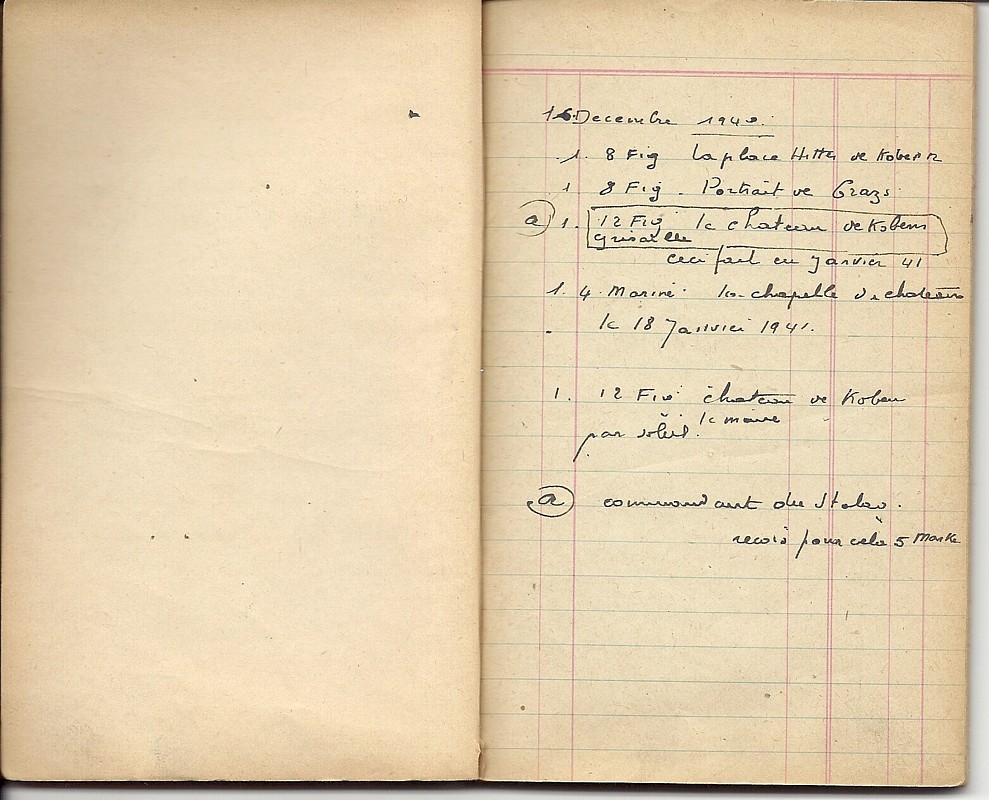 16 Decembre 1940.
1. 8 Fig La place Hitler de Kobern
1 8 Fig - Portrait de
a 1. 12 Fig le chateau de Kobern
grisaille
ceci fait en Janvier 41
1. 4 Marine la chapelle du chateau
le 18 Janvier 1941.
1. 12 Fig chateau de Kobern
le meme
par soleil.
a commandant du Stalag.
recois pour cela 5 Marks